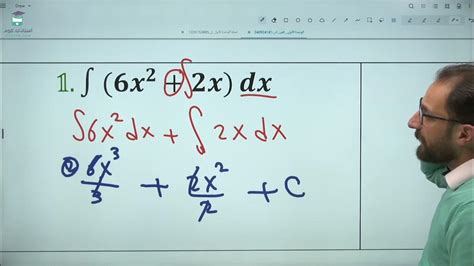 1. ∫ (6x² + 2x) dx
∫6x²dx + ∫ 2x dx
② 6x³/3 + 2x²/2 + C